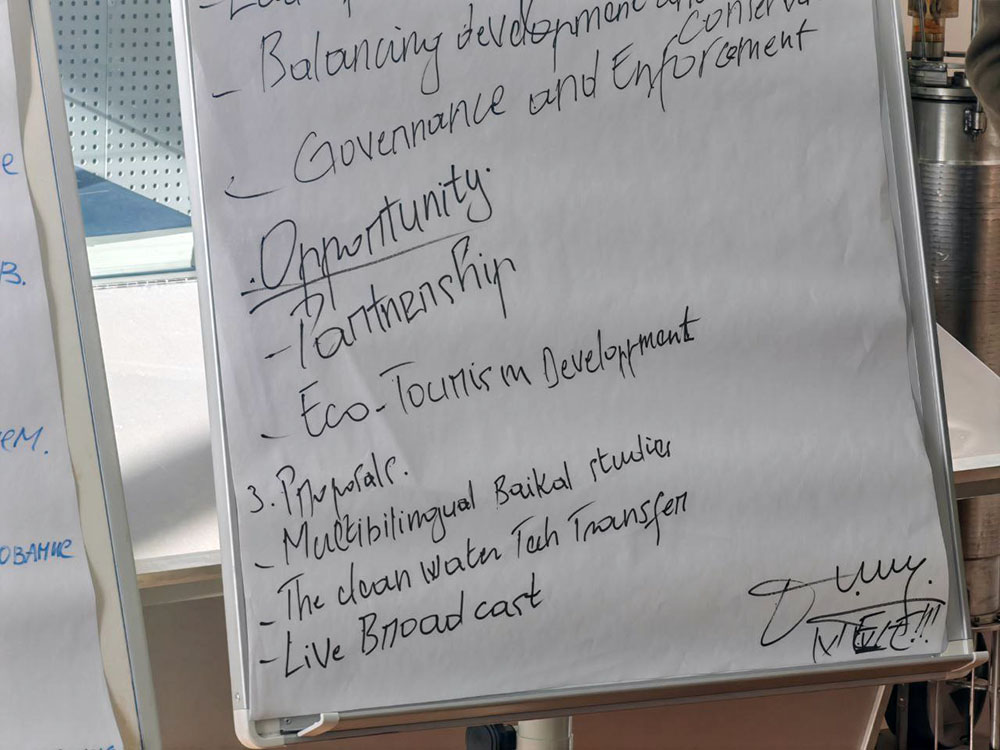 - Balancing development and
Conserva
- Governance and Enforcement
. Opportunity.
- Partnership
- Eco-Tourism Development
3. Proposals.
- Multibilingual Baikal studies
- The clean water Tech Transfer
- Live Broadcast
е
в.
ем.
ование